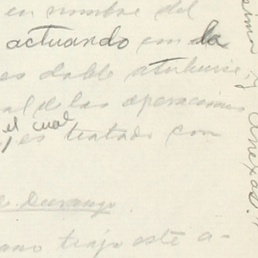 en nombre del
actuando con la
es doble
al de las operaciones
el cual
, es tratado con
de Durango.
ano trajo este a-
sima y anexas.